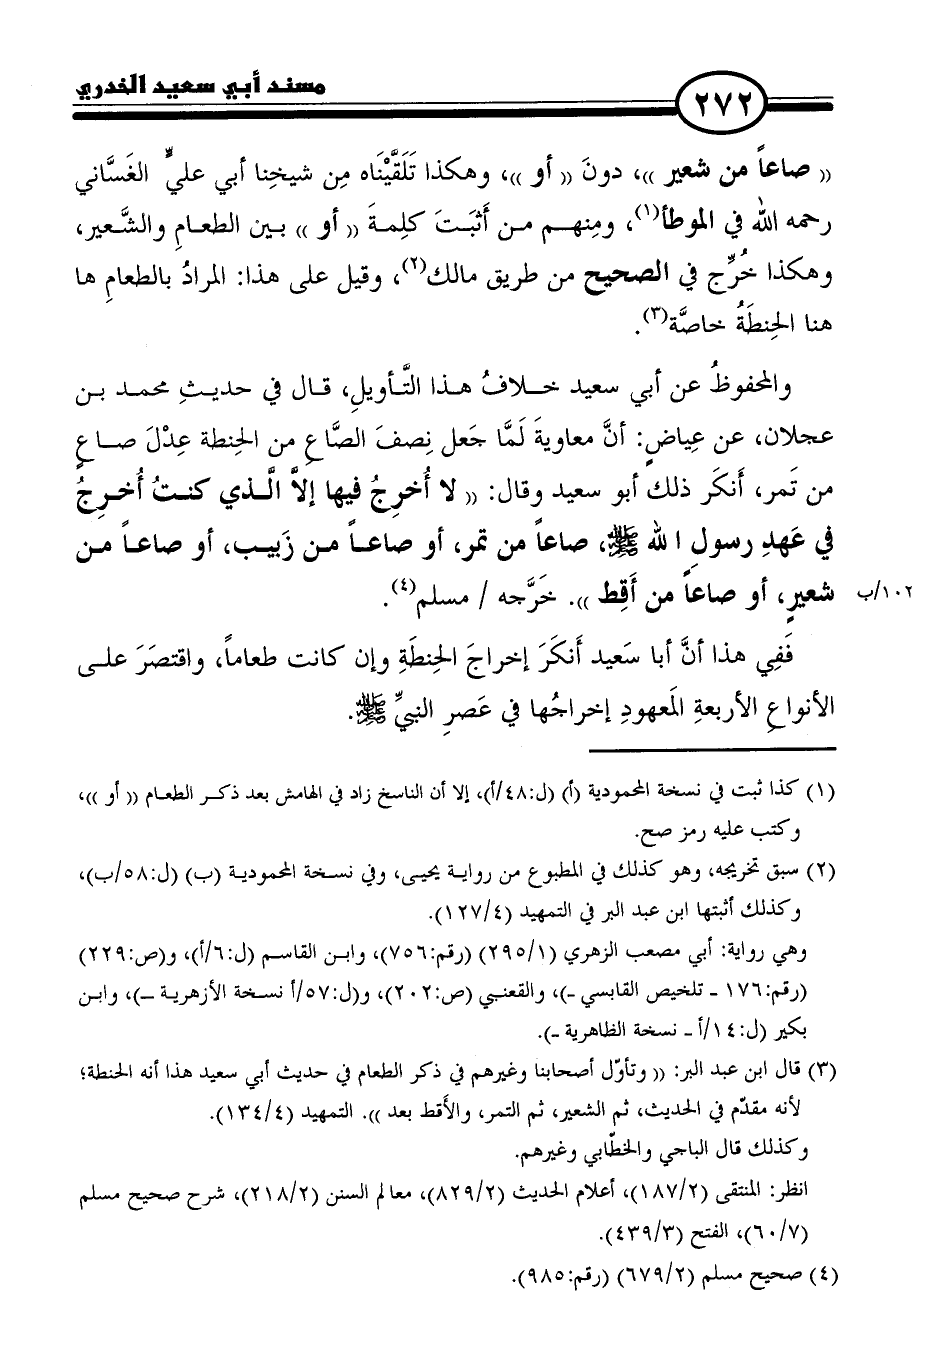 مسند أبي سعيد الخدري
٢٧٢
(( صاعاً من شعير ))، دونَ (( أو ))، وهكذا تَلَقَّيْنَاه مِن شيخِنا أبي عليٍّ الغَسَّاني
رحمه الله في الموطأ(١)، ومِنهم من أَثبَتَ كلِمةَ (( أو )) بين الطعامِ والشَّعير،
وهكذا خُرِّج في الصحيح من طريق مالك(٢)، وقيل على هذا: المرادُ بالطعامِ ها
هنا الحِنطَةُ خاصَّة(٣).
والمحفوظُ عن أبي سعيد خلافُ هذا التَّأويلِ، قال في حديثِ محمد بن
عجلان، عن عِياضٍ: أنَّ معاويةَ لَمَّا جَعل نِصفَ الصَّاعِ من الحِنطة عِدْلَ صاعٍ
من تَمر، أَنكَر ذلك أبو سعيد وقال: (( لا أُخرِجُ فيها إلاَّ الَّذي كنتُ أُخرِجُ
في عَهدِ رسولِ الله ﷺ، صاعاً من تمر، أو صاعاً من زَبيب، أو صاعاً من
شعيرٍ، أو صاعاً من أَقِط )). خَرَّجه / مسلم(٤).
١٠٢/ب
فَفِي هذا أنَّ أبا سَعيد أَنكَرَ إخراجَ الحِنطَةِ وإن كانت طعاماً، واقتصَرَ على
الأنواعِ الأربعةِ المَعهودِ إخراجُها في عَصرِ النبيِّ ﷺ.
(١) كذا ثبت في نسخة المحمودية (أ) (ل:٤٨/أ)، إلا أن الناسخ زاد في الهامش بعد ذكر الطعام (( أو ))،
وكتب عليه رمز صح.
(٢) سبق تخريجه، وهو كذلك في المطبوع من رواية يحيى، وفي نسخة المحمودية (ب) (ل:٥٨/ب)،
وكذلك أثبتها ابن عبد البر في التمهيد (١٢٧/٤).
وهي رواية: أبي مصعب الزهري (٢٩٥/١) (رقم:٧٥٦)، وابن القاسم (ل:٦/أ)، و(ص:٢٢٩)
(رقم:١٧٦ ـ تلخيص القابسي ـ)، والقعنبي (ص:٢٠٢)، و(ل:٥٧/أ نسخة الأزهرية ـ)، وابن
بكير (ل:١٤/أ ـ نسخة الظاهرية ـ).
(٣) قال ابن عبد البر: (( وتأوّل أصحابنا وغيرهم في ذكر الطعام في حديث أبي سعيد هذا أنه الحنطة؛
لأنه مقدّم في الحديث، ثم الشعير، ثم التمر، والأَقط بعد )). التمهيد (١٣٤/٤).
وكذلك قال الباجي والخطّابي وغيرهم.
انظر: المنتقى (١٨٧/٢)، أعلام الحديث (٨٢٩/٢)، معالم السنن (٢١٨/٢)، شرح صحيح مسلم
(٦٠/٧)، الفتح (٤٣٩/٣).
(٤) صحيح مسلم (٦٧٩/٢) (رقم:٩٨٥).